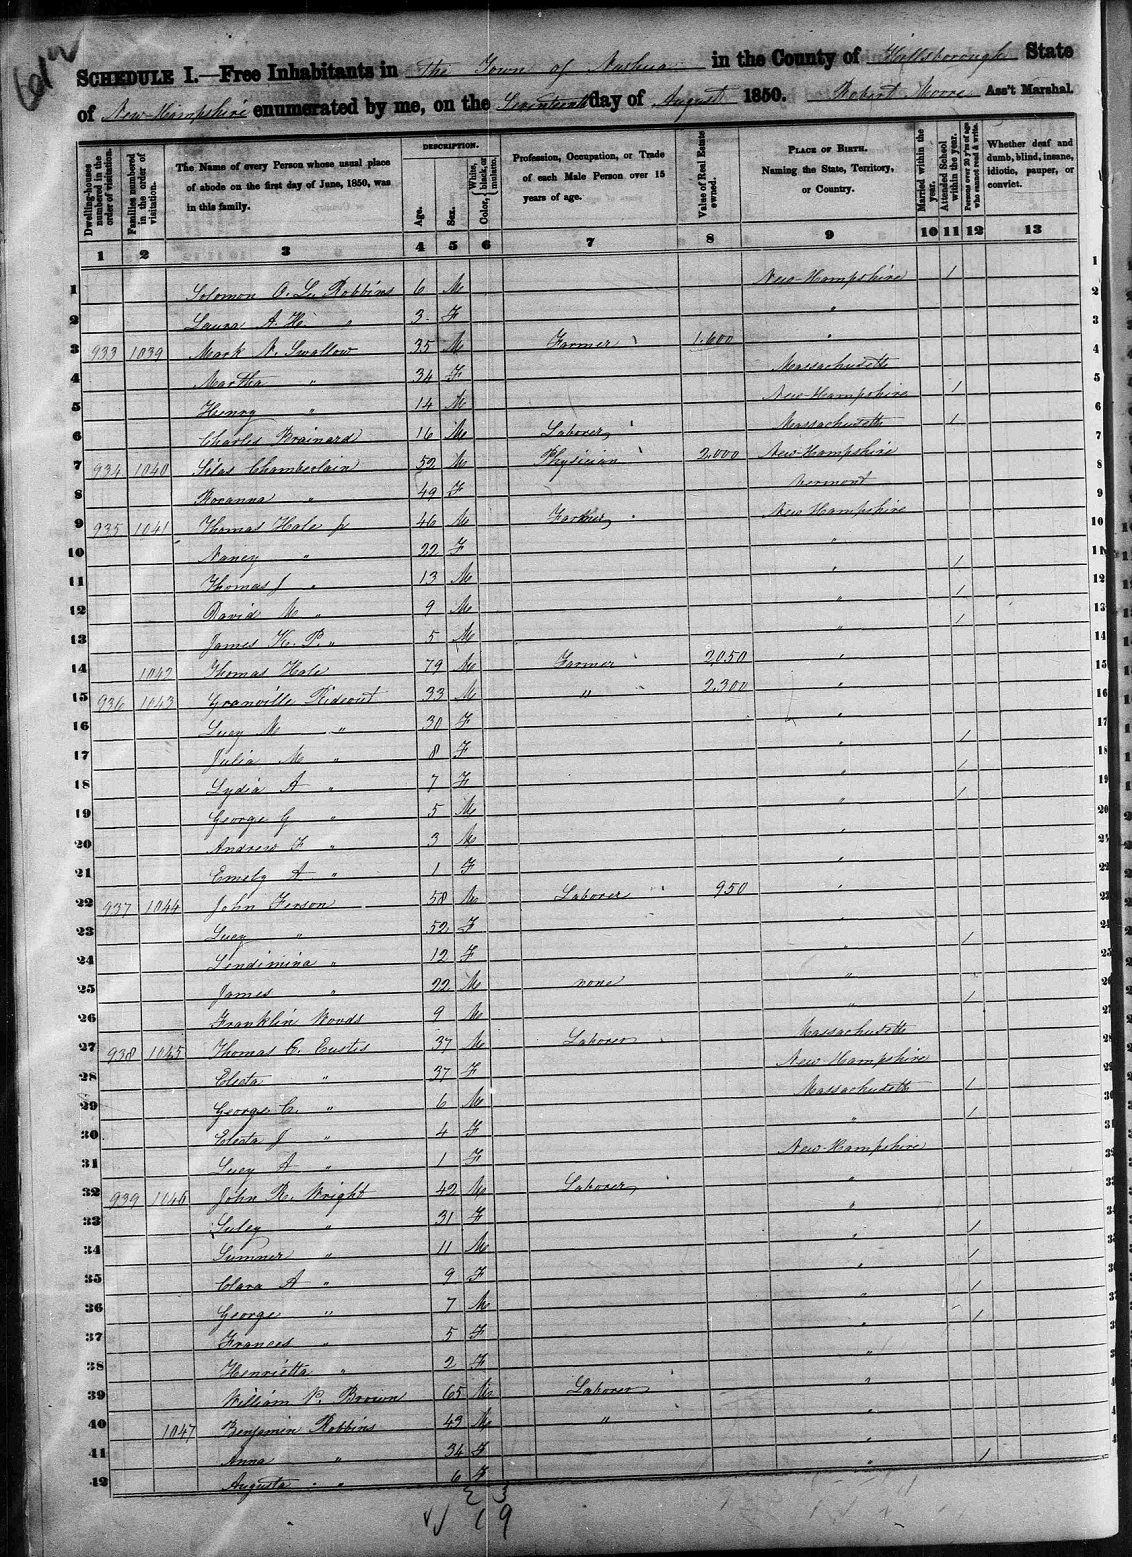 SCHEDULE I.—Free Inhabitants in the Town of Nashua in the County of Hillsborough State
of New-Hampshire enumerated by me, on the Seventeenth day of August 1850. Robert Moore Ass't Marshal.
Dwelling-houses numbered in the order of visitation.
Families numbered in the order of visitation.
The Name of every Person whose usual place of abode on the first day of June, 1850, was in this family.
DESCRIPTION.
Age.
Sex.
Color, White, black, or mulatto.
Profession, Occupation, or Trade of each Male Person over 15 years of age.
Value of Real Estate owned.
PLACE OF BIRTH. Naming the State, Territory, or Country.
Married within the year.
Attended School within the year.
Persons over 20 y'rs of age who cannot read & write.
Whether deaf and dumb, blind, insane, idiotic, pauper, or convict.
1 2 3 4 5 6 7 8 9 10 11 12 13
1 Solomon O. L. Robbins 6 M New-Hampshire /
2 Laura A. H. " 3 F "
3 933 1039 Mark A. Swallow 35 M Farmer 1.600 "
4 Martha " 34 F Massachusetts
5 Henry " 14 M New-Hampshire /
6 Charles Brainard 16 M Laborer Massachusetts /
7 934 1040 Silas Chamberlain 52 M Physician 2.000 New-Hampshire
8 Roxanna " 49 F Vermont
9 935 1041 Thomas Hale Jr 46 M Farmer New Hampshire
10 Nancy " 22 F "
11 Thomas J " 13 M " /
12 David M " 9 M " /
13 James K. P. " 5 M " /
14 1042 Thomas Hale 79 M Farmer 2050 "
15 936 1043 Granville Rideout 33 M " 2.300 "
16 Lucy M " 30 F "
17 Julia M " 8 F " /
18 Lydia A " 7 F " /
19 George G " 5 M " /
20 Andrew F " 3 M "
21 Emely A " 1 F "
22 937 1044 John Ferson 58 M Laborer 950 "
23 Lucy " 52 F "
24 Lendimina " 12 F " /
25 James " 22 M none "
26 Franklin Woods 9 M " /
27 938 1045 Thomas E. Eustis 37 M Laborer Massachusetts
28 Electa " 37 F New Hampshire
29 George C. " 6 M Massachusetts /
30 Electa J " 4 F " /
31 Lucy A " 1 F New Hampshire
32 939 1046 John R. Wright 42 M Laborer "
33 Suley " 31 F "
34 Sumner " 11 M " /
35 Clara A " 9 F " /
36 George " 7 M " /
37 Frances " 5 F " /
38 Henrietta " 2 F "
39 William P. Brown 65 M Laborer "
40 1047 Benjamin Robbins 43 M " "
41 Anna " 34 F "
42 Augusta " 6 F " /
23
19